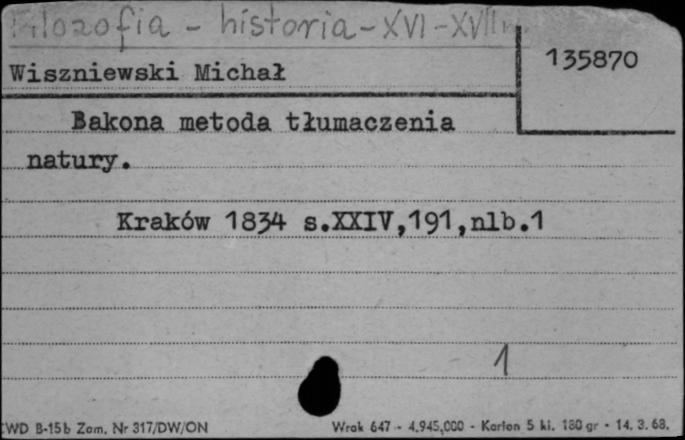 Filozofia - historia - XVI - XVII w.
135870
Wiszniewski Michał
Bakona metoda tłumaczenia
natury.
Kraków 1834 s.XXIV,191,nlb.1
1
WD B-15b Zam. Nr 317/DW/ON Wrok 647 - 4.945,000 - Karton 5 kl. 180 gr - 14. 3. 68.